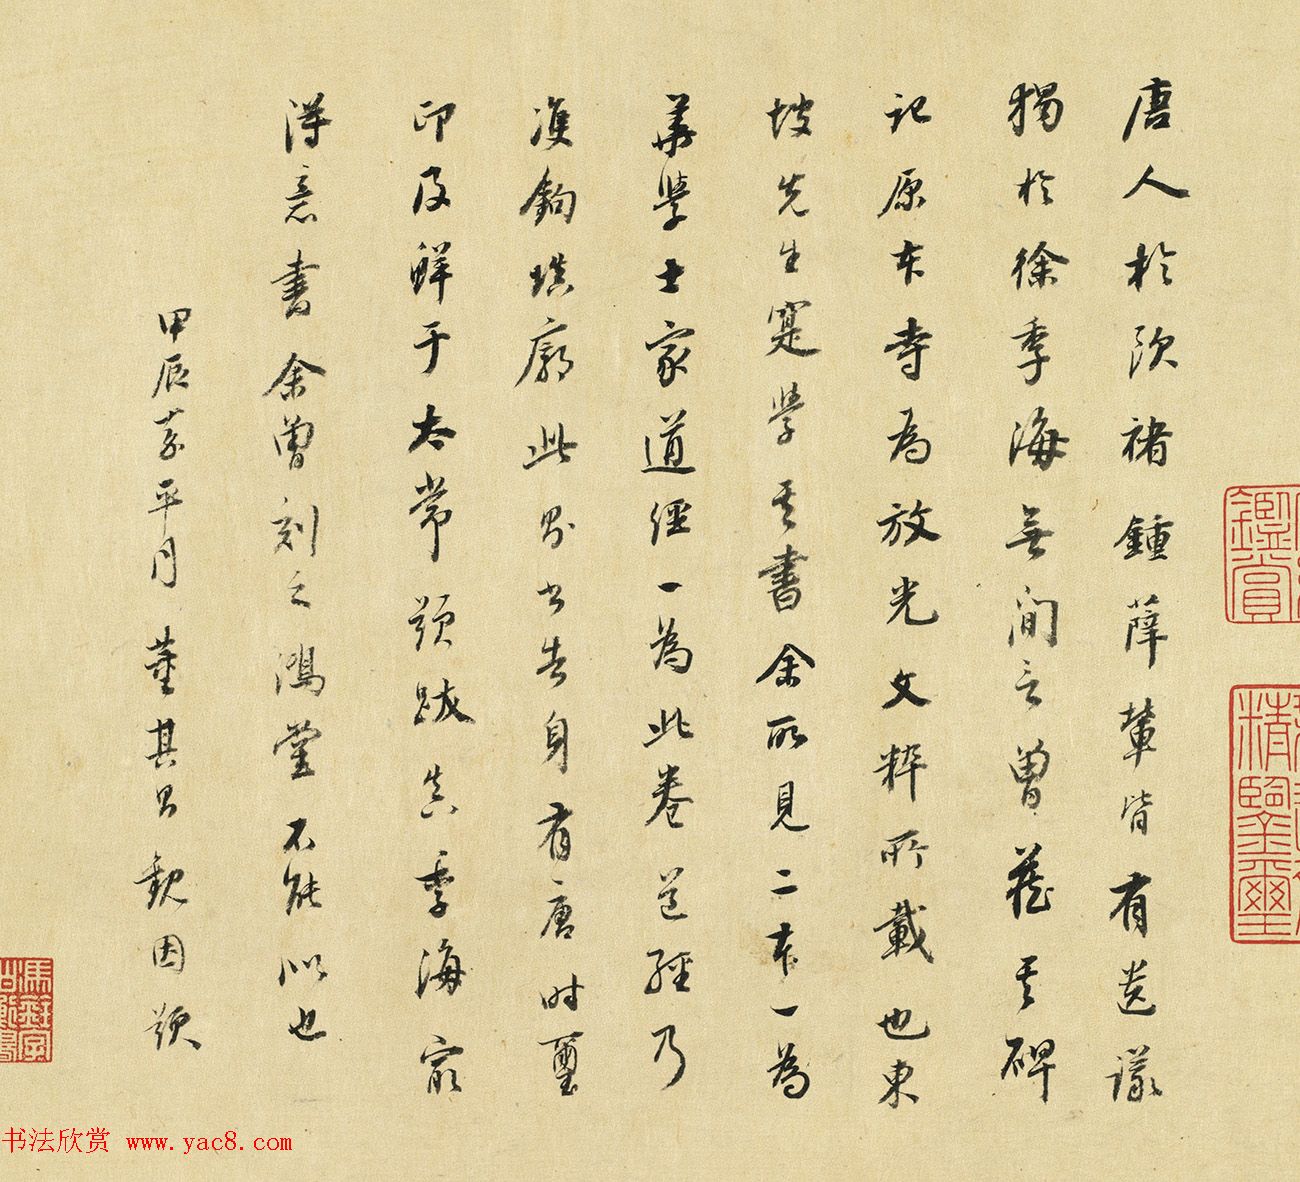 唐人於歐褚鍾薛輩皆有遺議
獨於徐季海無間言曾藏其碑
記原本寺為放光文粹所載也東
坡先生寔學其書余所見二本一為
華學士家道經一為此卷道經乃
雙鉤填廓此則書告身有唐時璽
印及鮮于太常題跋真季海最
得意書余曾刻之鴻堂不能似也
甲辰嘉平月董其昌觀因題
鑑賞
精鑒璽
书法欣赏 www.yac8.com